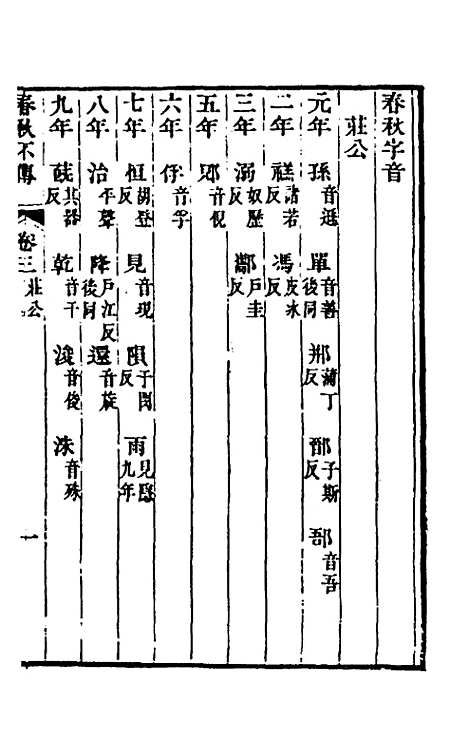 春秋字音
莊公
元年 孫音遜 單音善後同 郱蒲丁反 鄑子斯反 郚音吾
二年 禚諸若反 馮皮冰反
三年 溺奴歷反 酅戶圭反
五年 郳音倪
六年 俘音孚
七年 恒胡登反 見音現 隕于閔反 雨見隱九年
八年 治平聲 降戶江反後同 還音旋
九年 蔇其器反 乾音干 浚音俊 洙音殊
春秋本傳 卷三 莊公 一